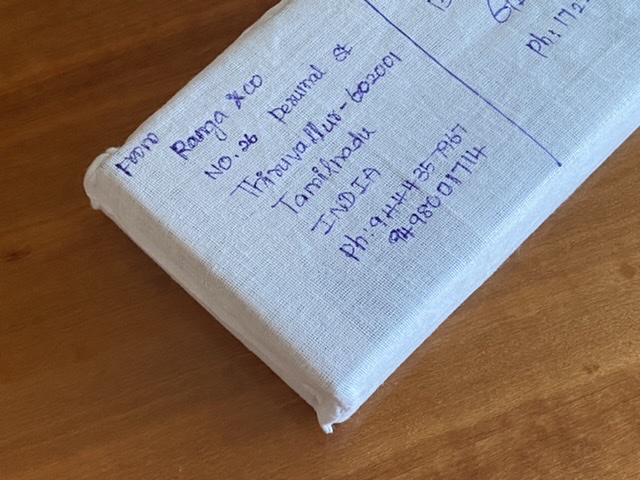 From
Ranga & co
NO. 26 Perumal st
Thiruvallur - 602001
Tamilnadu
INDIA
Ph: 9444357967
9498001714
Ph: 172